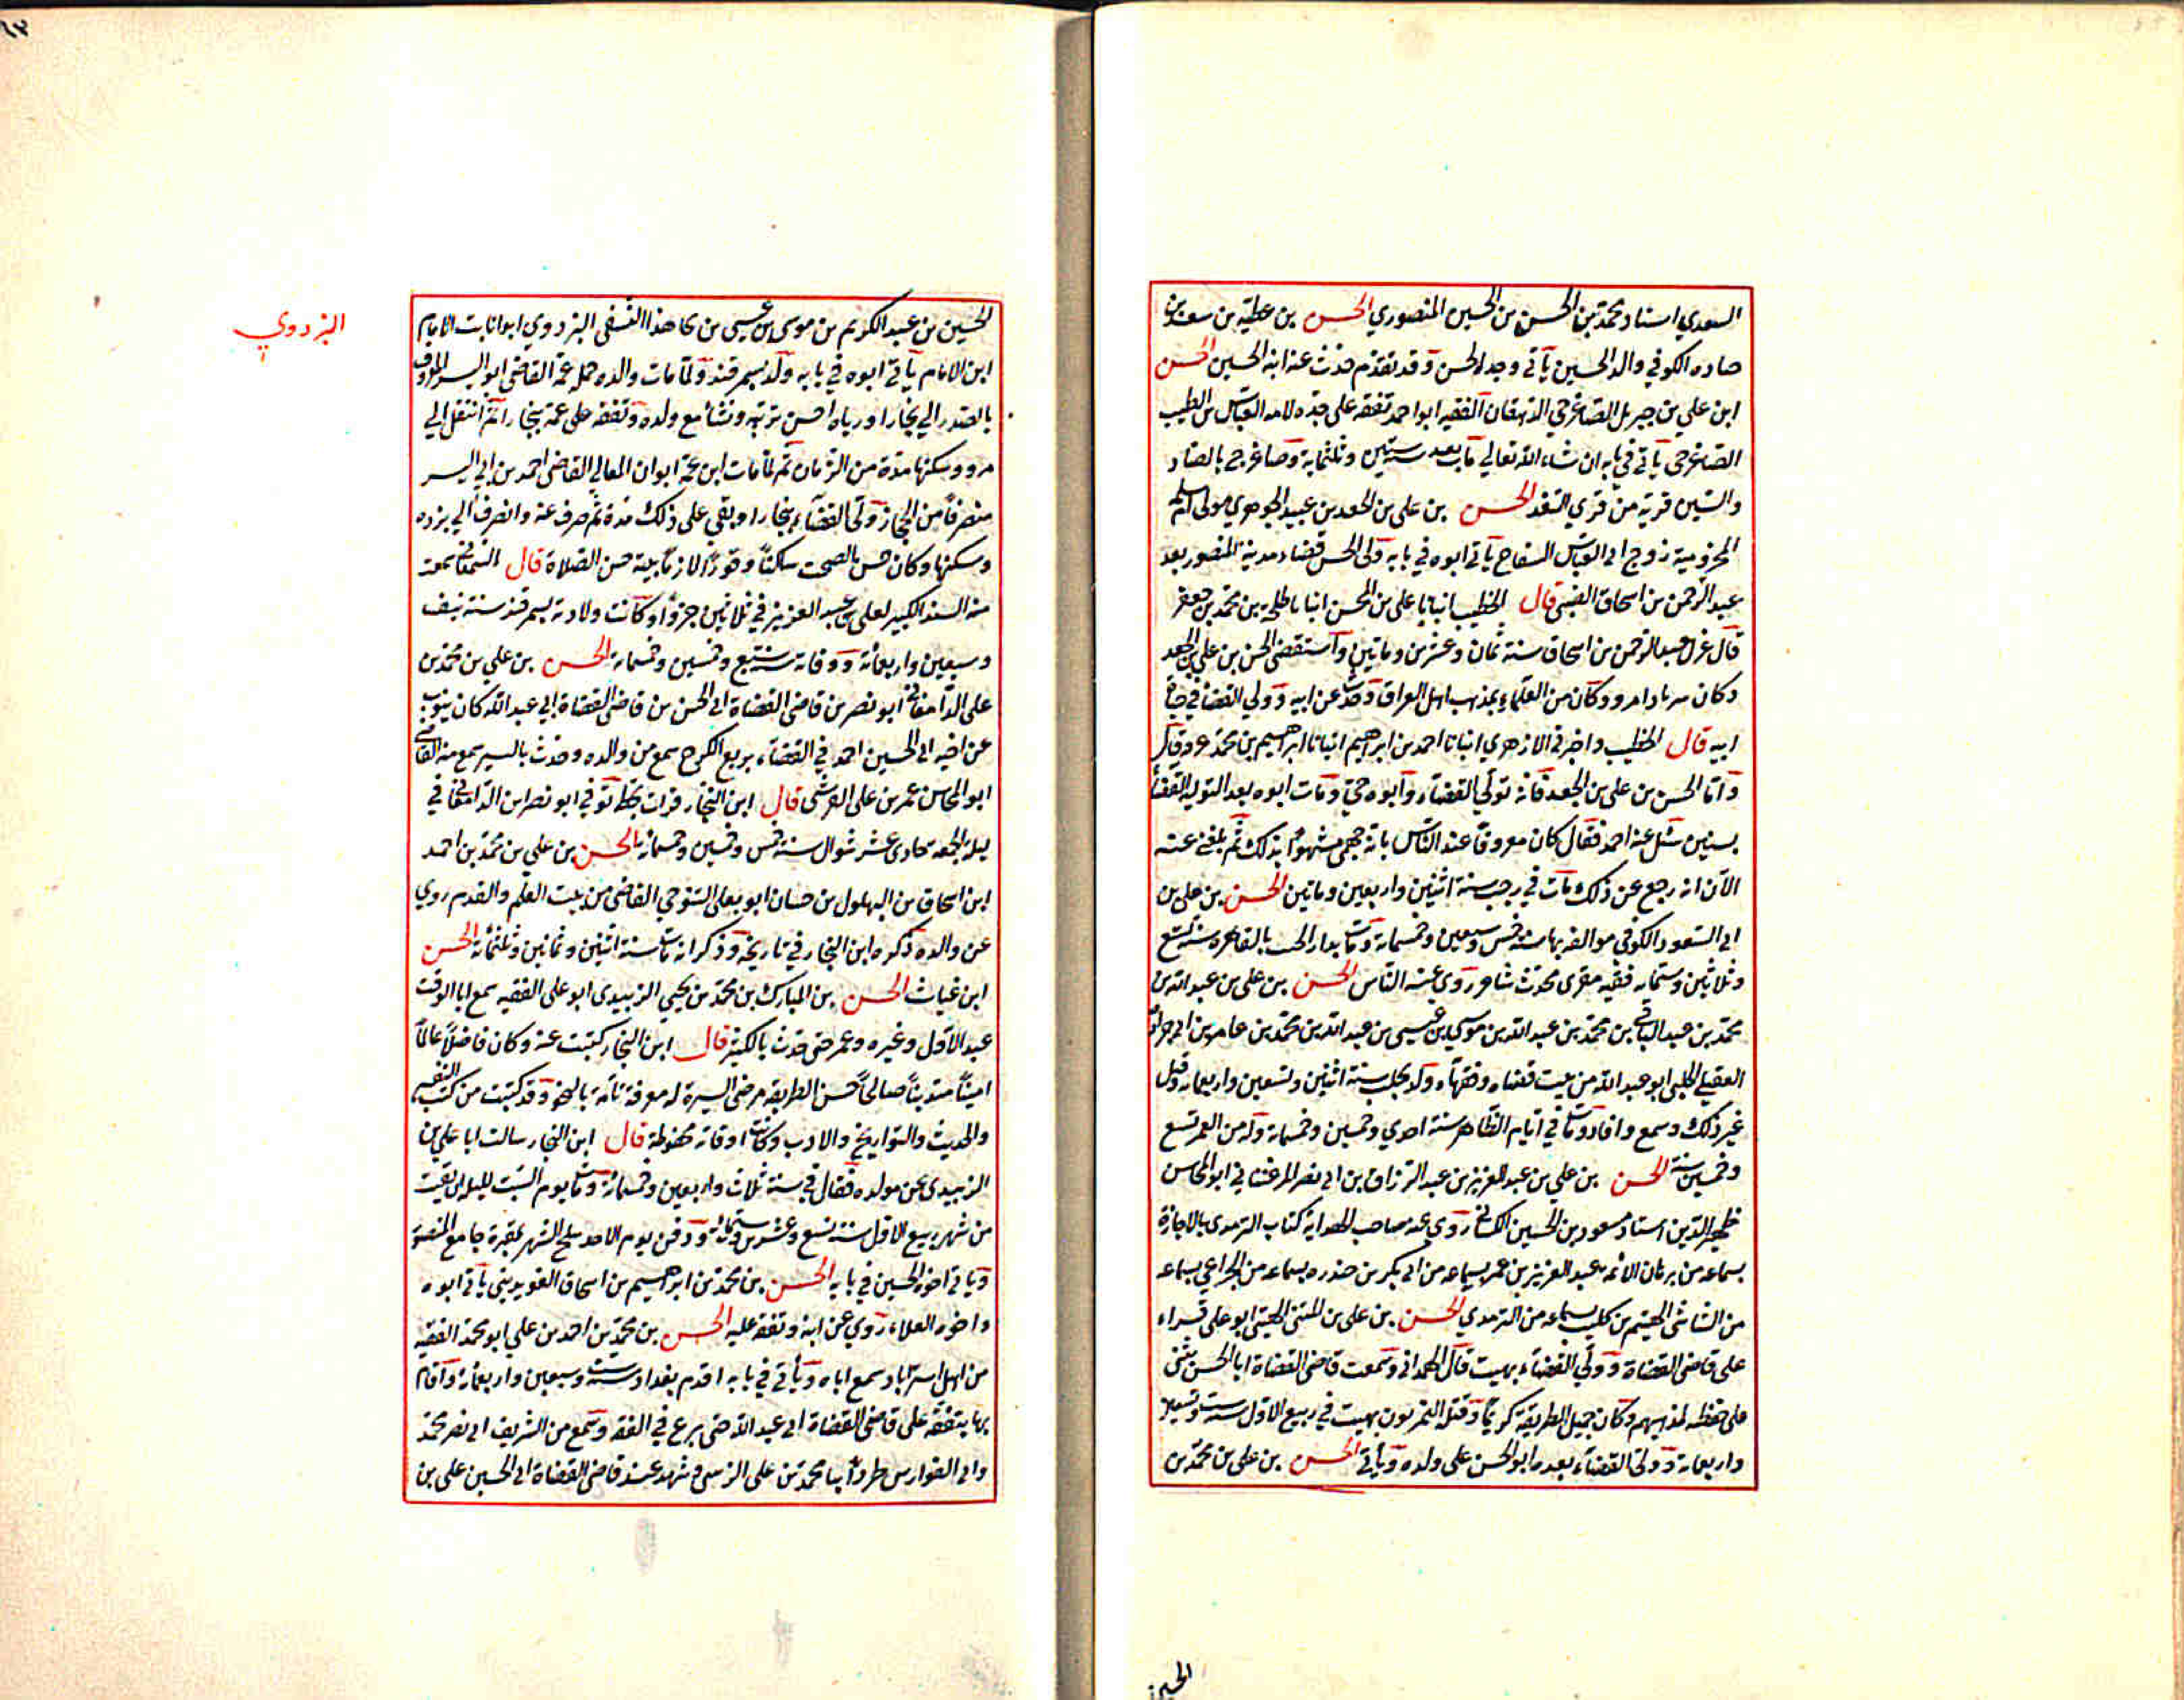 السعدي استاد محمد بن الحسن من الحسين المنصوري الحسن بن عطية بن سعد بن
صاده الكوفي والد الحسين يأتي وجد الحسن وقد تقدم حدث عنه ابنه الحسين الحسن
ابن علي بن جبريل الصاغرجي الدهقان الفقيه ابو احمد تفقه على جده لامه العباس بن الطيب
الصاغرجي يأتي في بابه ان شاء الله تعالي مات بعد سنة ستين وثلثماية وصاغرج بالصاد
والسين قرية من قري السغد الحسن بن علي بن الجعد بن عبيد الجوهري مولى ام سلمة
المخزومية زوج ابي العباس السفاح يأتي ابوه في بابه ولى الحسن قضاء مدينة المنصور بعد
عبد الرحمن بن اسحاق الضبي قال الخطيب انبانا علي بن المحسن انبانا طلحة بن محمد بن جعفر
قال عزل عبد الرحمن بن اسحاق سنة ثمان وعشرين ومايتين واستقضى الحسن بن علي بن الجعد
وكان سريا ذا مروءة وكان من العلماء بمذهب اهل العراق وحدث عن ابيه وولي القضا في حياة
ابيه قال الخطيب واخبرني الازهري انبانا احمد بن ابراهيم انبانا ابراهيم بن محمد عرفة قال
واما الحسن بن علي بن الجعد فانه تولي القضاء وابوه حي ومات ابوه بعد التولية القضاء
بسنين سئل عنه احمد فقال كان معروفا عند الناس بانه جهمي مشهورا بذلك ثم بلغني عنه
الآن انه رجع عن ذلك ومات في رجب سنة اثنين واربعين وماتين الحسن بن علي بن
ابي السعود الكوفي مولده بها سنة خمس وسبعين وخمسمائة ومات بالقاهرة سنة تسع
وثلاثين وستمايه فقيه مقري محدث شاعر روي عنه الناس الحسن بن علي بن عبد الله بن
محمد بن عبد الباقي بن محمد بن عبد الله بن موسى بن عيسى بن عبد الله بن محمد بن عامر بن ابي جرادة
العقيلي الحلبي ابو عبد الله من بيت قضاه وفقهاء ولد بحلب سنة اثنين وتسعين واربعمايه وقيل
غير ذلك وسمع وافاد ومات في ايام الظاهر سنة احدي وخمسين وخمسماية وله من العمر تسع
وخمسين سنة الحسن بن علي بن عبد العزيز بن عبد الرزاق بن ابي نصر المرغيناني ابو المحاسن
ظهير الدين استاد مسعود بن الحسين الكشاني روي عنه صاحب الهداية كتاب الترمدي بالاجازة
بسماعه من برهان الائمة عبد العزيز بن عمر بسماعه من ابي بكر بن حيدره بسماعه من الخزاعي بسماعه
من الشاشي الهيثم بن كليب بسماعه من الترمدي الحسن بن علي بن المثنى ابو علي قراء
على قاضي القضاة وولي القضاء بهيت قال الهمداني وسمعت قاضي القضاة ابا الحسن يثني
على حفظه لمذهبهم وكان جميل الطريقة كريما وقتله بهيت في ربيع الاول سنة ست وتسعين
واربعماية وولي القضاء بعده ابو الحسن علي ولده ويأتي الحسن بن علي بن محمد بن
الحسين
٦٣
البزدوي
الحسين بن عبد الكريم بن موسى بن عيسى بن مجاهد النسفي البزدوي ابو ثابت الامام
ابن الامام يأتي ابوه في بابه ولد بسمرقند ولما مات والده حمله عمه القاضي ابو اليسر المعروف
بالصدر الي بخارا ورباه احسن تربية ونشأ مع ولده وتفقه على عمه ببخارا ثم انتقل الي
مرو وسكنها مدة من الزمان ثم لما مات ابن عمه ابو المعالي القاضي احمد بن ابي اليسر
منصرفا من الحجاز ولي القضاء ببخارا وبقي على ذلك مدة ثم صرف عنه وانصرف الي بزده
وسكنها وكان حسن الصحت ساكنا وقورا لازما بيته حسن الصلاة قال السمعاني سمعت
منه المسند الكبير لعلي بن عبد العزيز في ثلاثين جزوا وكانت ولادته بسمرقند سنة نيف
وسبعين واربعمائة ووفاته سنة سبع وخمسين وخمسماية الحسن بن علي بن محمد بن
علي الدامغاني ابو نصر بن قاضي القضاة ابي الحسن بن قاضي القضاة ابي عبد الله كان ينوب
عن اخيه ابي الحسين احمد في القضاء بربع الكرخ سمع من والده وحدث باليسير سمع منه القاضي
ابو المحاسن عمر بن علي القرشي قال ابن النجار قرات بخطه توفي ابو نصر ابن الدامغاني في
ليلة الجمعة حادي عشر شوال سنة خمس وخمسين وخمسمائة الحسن بن علي بن محمد بن احمد
ابن اسحاق بن البهلول بن حسان ابو يعلى التنوخي القاضي من بيت العلم والقدم روي
عن والده ذكره ابن النجار في تاريخه وذكر انه مات سنة اثنين وثمانين وثلثمائة الحسن
ابن غياث الحسن بن المبارك بن محمد بن يحيي الزبيدي ابو علي الفقيه سمع ابا الوقت
عبد الاول وغيره وعمر حتى حدث بالكثير قال ابن النجار كتبت عنه وكان فاضلا عالما
امينا متدينا صالحا حسن الطريقة مرضي السيرة له معرفة تامة بالنحو وقد كتبت من كتب التفسير
والحديث والتواريخ والادب وكانت اوقاته محفوظة قال ابن النجار سالت ابا علي بن
الزبيدي عن مولده فقال في سنة ثلاث واربعين وخمسمائة ومات يوم السبت لليلة بقيت
من شهر ربيع الاول سنة تسع وعشرين وستمائة ودفن يوم الاحد سلخ الشهر بمقبرة جامع المنصور
ويأتي اخوه الحسين في بابه الحسن بن محمد بن ابراهيم بن اسحاق يأتي ابوه
واخوه العلاء روي عن ابيه وتفقه عليه الحسن بن محمد بن احمد بن علي ابو محمد الفقيه
من اهل استراباد سمع اباه ويأتي في بابه اقدم بغداد سنة ست وسبعين واربعمائة واقام
بها يتفقه على قاضي القضاة ابي عبد الله حتى برع في الفقه وسمع من الشريف ابي نصر محمد
وابي الفوارس طراد ابنا محمد بن علي الزينبي وشهد عند قاضي القضاة ابي الحسين علي بن